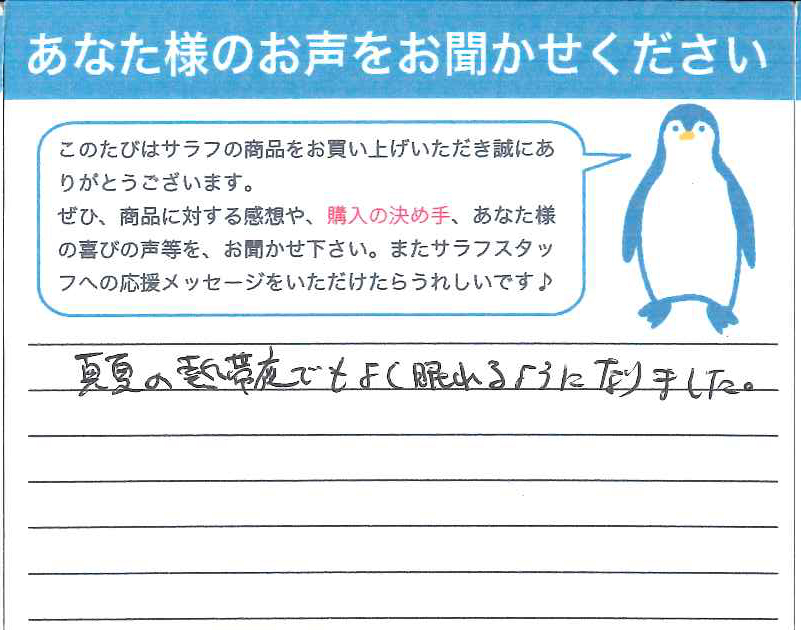 あなた様のお声をお聞かせください
このたびはサラフの商品をお買い上げいただき誠にあ
りがとうございます。
ぜひ、商品に対する感想や、購入の決め手、あなた様
の喜びの声等を、お聞かせ下さい。またサラフスタッ
フへの応援メッセージをいただけたらうれしいです♪
真夏の熱帯夜でもよく眠れるようになりました。